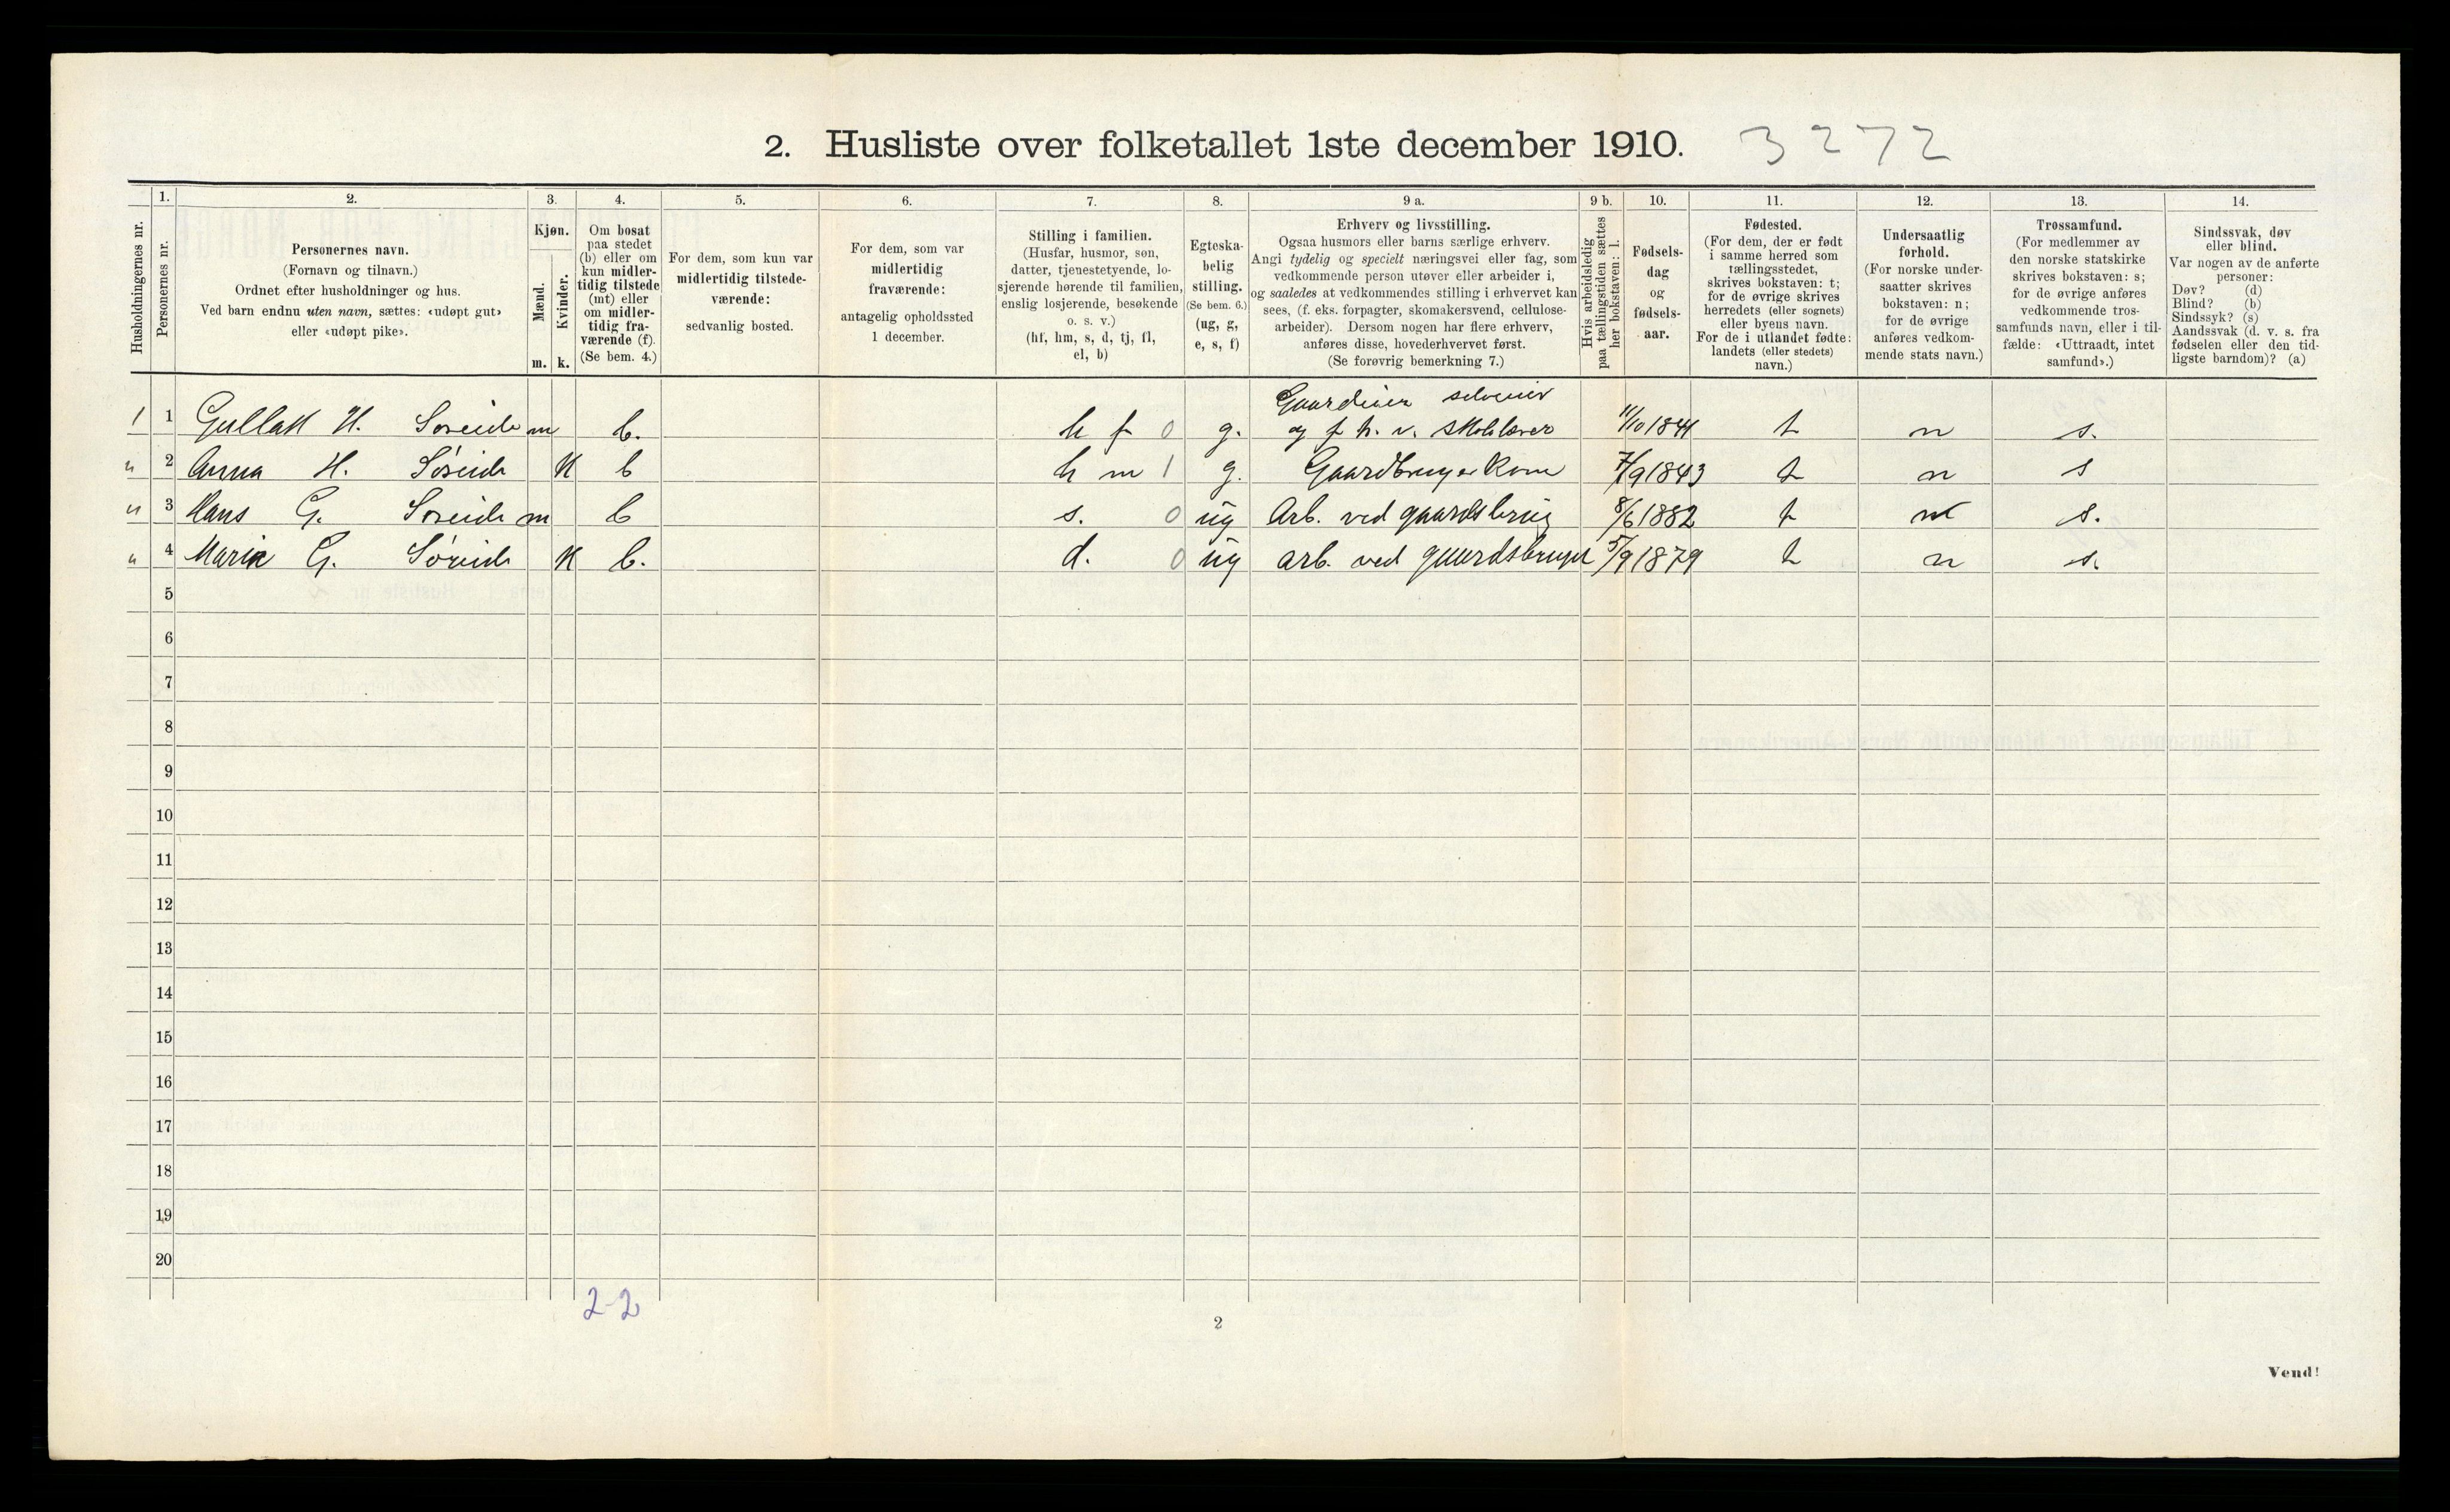 2. Husliste over folketallet 1ste december 1910. 3272
1. 2. 3. 4. 5. 6. 7. 8. 9 a. 9 b. 10. 11. 12. 13. 14.
Husholdningernes nr.
Personernes nr.
Personernes navn.
(Fornavn og tilnavn.)
Ordnet efter husholdninger og hus.
Ved barn endnu uten navn, sættes: «udøpt gut»
eller «udøpt pike».
Kjøn.
Mænd.
Kvinder.
m. k.
Om bosat
paa stedet
(b) eller om
kun midler-
tidig tilstede
(mt) eller
om midler-
tidig fra-
værende (f).
(Se bem. 4.)
For dem, som kun var
midlertidig tilstede-
værende:
sedvanlig bosted.
For dem, som var
midlertidig
fraværende:
antagelig opholdssted
1 december.
Stilling i familien.
(Husfar, husmor, søn,
datter, tjenestetyende, lo-
sjerende hørende til familien,
enslig losjerende, besøkende
o. s. v.)
(hf, hm, s, d, tj, fl,
el, b)
Egteska-
belig
stilling.
(Se bem. 6.)
(ug, g,
e, s, f)
Erhverv og livsstilling.
Ogsaa husmors eller barns særlige erhverv.
Angi tydelig og specielt næringsvei eller fag, som
vedkommende person utøver eller arbeider i,
og saaledes at vedkommendes stilling i erhvervet kan
sees, (f. eks. forpagter, skomakersvend, cellulose-
arbeider). Dersom nogen har flere erhverv,
anføres disse, hovederhvervet først.
(Se forøvrig bemerkning 7.)
Hvis arbeidsledig
paa tællingstiden sættes
her bokstaven: l.
Fødsels-
dag
og
fødsels-
aar.
Fødested.
(For dem, der er født
i samme herred som
tællingsstedet,
skrives bokstaven: t;
for de øvrige skrives
herredets (eller sognets)
eller byens navn.
For de i utlandet fødte:
landets (eller stedets)
navn.)
Undersaatlig
forhold.
(For norske under-
saatter skrives
bokstaven: n;
for de øvrige
anføres vedkom-
mende stats navn.)
Trossamfund.
(For medlemmer av
den norske statskirke
skrives bokstaven: s;
for de øvrige anføres
vedkommende tros-
samfunds navn, eller i til-
fælde: «Uttraadt, intet
samfund».)
Sindssvak, døv
eller blind.
Var nogen av de anførte
personer:
Døv? (d)
Blind? (b)
Sindssyk? (s)
Aandssvak (d. v. s. fra
fødselen eller den tid-
ligste barndom)? (a)
1 1 H. Søreide m b. h f 0 g. og f. h. v. 11/10 1841 t n s.
" 2 Anna H. Søreide K b h m 1 g. Gaardbrugerkone 7/9 1843 t n s
" 3 Hans G. Søreide m b s. 0 ug Arb. ved gaardsbrug 8/6 1882 t n s.
" 4 G. Søreide K b. d. 0 ug arb. ved gaardsbruget 5/9 1879 t n s.
5
6
7
8
9
10
11
12
13
14
15
16
17
18
19
20
2-2
2
Vend!